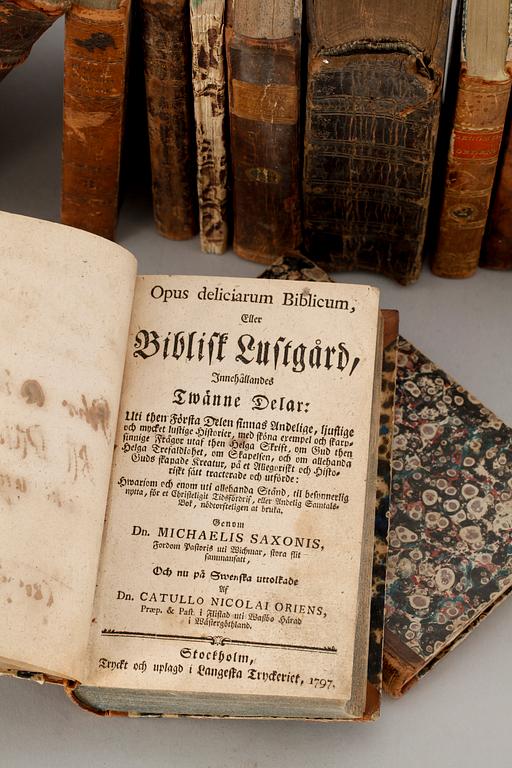 Opus deliciarum Biblicum,
Eller
Biblisk Lustgård,
Innehållandes
Twänne Delar:
Uti then Första Delen finnas Andelige, ljuflige
och mycket lustige Historier, med sköna exempel och skarp-
sinnige Frågor utaf then Helga Skrift, om Gud then
Helga Trefaldighet, om Skapelsen, och om allehanda
Guds skapade Kreatur, på et Allegoriskt och Histo-
riskt sätt tracterade och utförde:
Hwariom och enom uti allehanda Stånd, til besynnerlig
nytta, för et Christeligit Tidsfördrif, eller Andelig Samtals-
Bok, nödtorfteligen at bruka,
Genom
Dn. MICHAELIS SAXONIS,
Fordom Pastoris uti Wichmar, stora flit
sammansatt,
Och nu på Swenska uttolkade
Af
Dn. CATULLO NICOLAI ORIENS,
Præp. & Past. i Flistad uti Wasbo Härad
i Wästergöthland.
Stockholm,
Tryckt och uplagd i Langeska Tryckeriet, 1797.